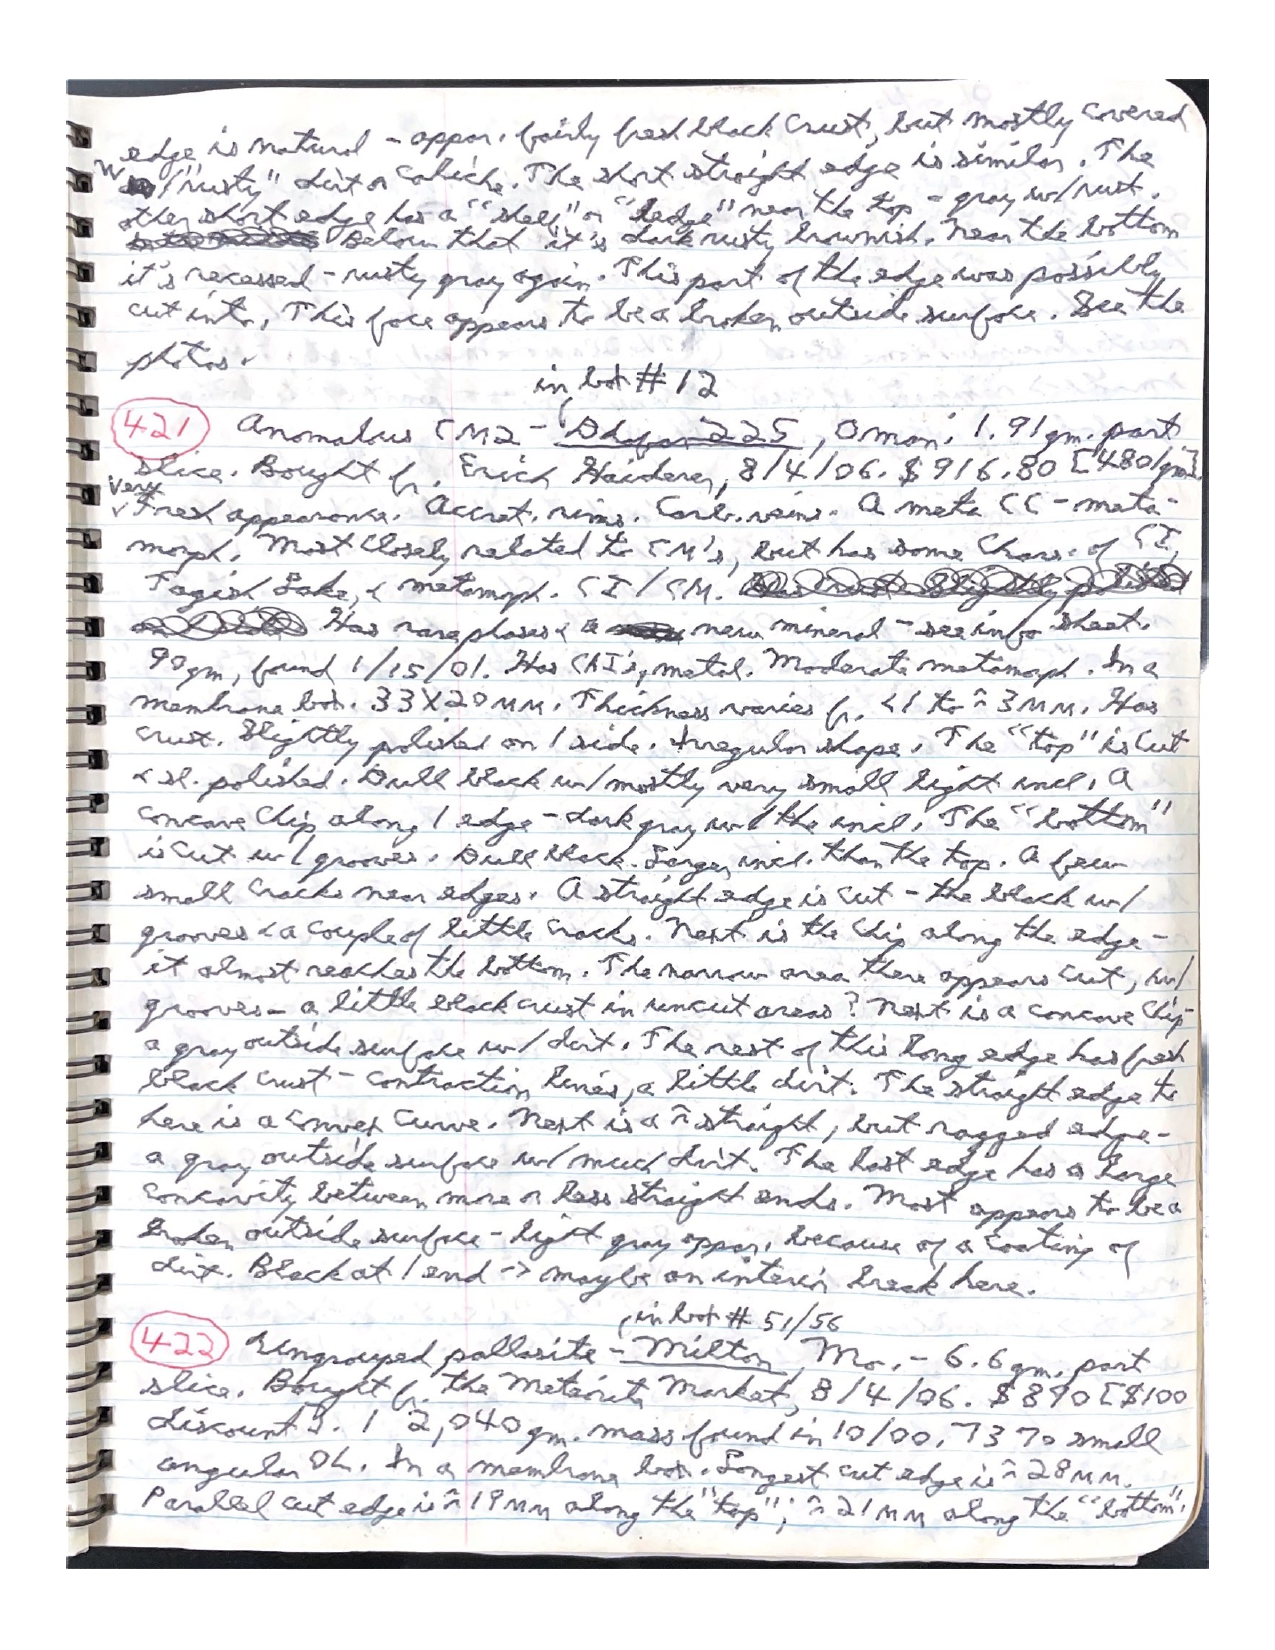 edge is natural - appar. fairly fresh black crust, but mostly covered
w/ "rusty" dirt or caliche. The short straight edge is similar. The
other short edge has a "shelf" or "ledge" near the top - gray w/ rust.
Below that it's dark rusty brownish. Near the bottom
it's recessed - rusty gray again. This part of the edge was possibly
cut into. This face appears to be a broken outside surface. See the
photos.
in bot # 12
421 Anomalous CM2 - Dhofar 225, Oman. 1.91 gm. part
slice. Bought fr. Erich Haiderer, 8/4/06. $916.80 [480/gm].
Very
Fresh appearance. Accret. rims. Carb. veins. A meta CC - meta-
morph. Most closely related to CM's, but has some chars. of CI,
Tagish Lake, & metamorph. CI/CM.
Has rare phases & a new mineral - see info sheet.
90 gm, found 1/15/01. Has CAI's, metal. Moderate metamorph. In a
membrane box. 33X20 MM. Thickness varies fr. <1 to ~3MM. Has
crust. Slightly polished on 1 side. Irregular shape. The "top" is cut
& sl. polished. Dull black w/ mostly very small light incl. A
concave chip along 1 edge - dark gray w/ the incl. The "bottom"
is cut w/ grooves. Dull black. Larger incl. than the top. A few
small cracks near edges. A straight edge is cut - the black w/
grooves & a couple of little cracks. Next is the chip along the edge -
it almost reaches the bottom. The narrow area there appears cut, w/
grooves - a little black crust in uncut areas? Next is a concave chip -
a gray outside surface w/ dirt. The rest of this long edge has fresh
black crust - contraction lines, a little dirt. The straight edge to
here is a convex curve. Next is a ~ straight, but ragged edge -
a gray outside surface w/ much dirt. The last edge has a large
concavity between more or less straight ends. Most appears to be a
broken outside surface - light gray appar. because of a coating of
dirt. Black at 1 end -> maybe an interior break here.
in bot # 51/56
422 Ungrouped pallasite - Milton, Mo. - 6.6 gm. part
slice. Bought fr. the Meteorite Market, 8/4/06. $890 [$100
discount]. 1 2,040 gm. mass found in 10/00. 73 % small
angular OL. In a membrane box. Longest cut edge is ~ 28MM.
Parallel cut edge is ~ 19MM along the "top"; ~ 21 MM along the "bottom".